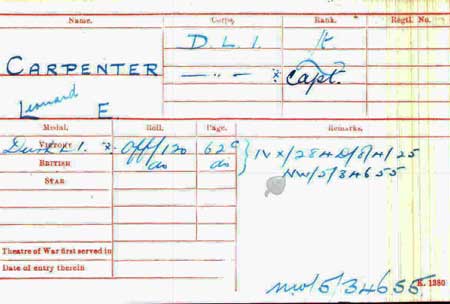 Name. Corps. Rank. Regtl. No.
D. L. I. Lt
CARPENTER — „ — Capt.
Leonard E.
Medal. Roll. Page. Remarks.
VICTORY Off/120 IV X/284 D/8/4/25
BRITISH do do NW/5/34655
STAR
Theatre of War first served in
Date of entry therein
K. 1380
NW/5/34655